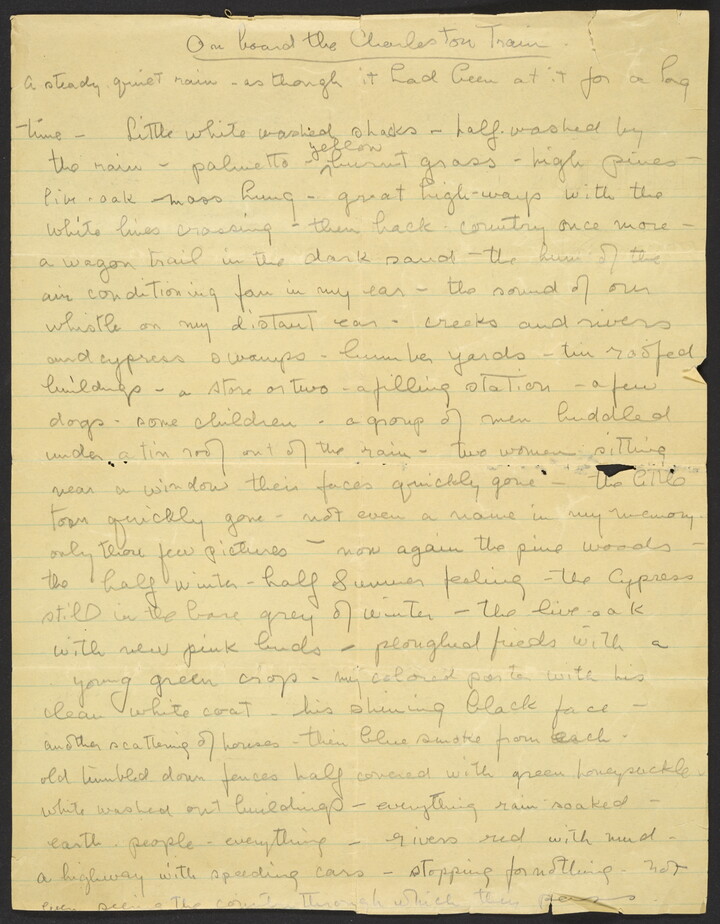 On board the Charleston Train.
A steady quiet rain - as though it had been at it for a long
time - Little white washed shacks - half-washed by
yellow
the rain - palmetto - burnt grass - high pines -
live-oak moss hung - great high-ways with the
white lines crossing - then back-country once more -
a wagon trail in the dark sand - the hum of the
air conditioning fan in my ear - the sound of our
whistle on my distant ear - creeks and rivers
and cypress swamps - lumber yards - tin roofed
buildings - a store or two - a filling station - a few
dogs - some children - a group of men huddled
under a tin roof out of the rain - two women sitting
near a window their faces quickly gone - the little
town quickly gone - not even a name in my memory
only those few pictures - now again the pine woods -
the half winter - half Summer feeling - the Cypress
still in the bare grey of winter - the live-oak
with new pink buds - ploughed fields with a
young green crop - my colored porter with his
clean white coat - his shining black face -
another scattering of houses - thin blue smoke from each -
old tumbled down fences half covered with green honeysuckle -
white washed out buildings - everything rain-soaked -
earth - people - everything - rivers red with mud -
a highway with speeding cars - stopping for nothing - not
even seeing the country through which they pass